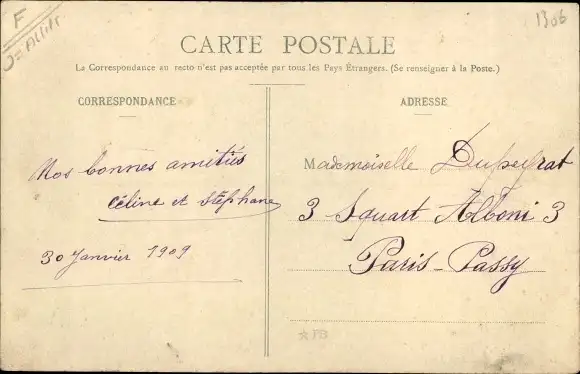 F
1306
CARTE POSTALE
La Correspondance au recto n'est pas acceptée par tous les Pays Étrangers. (Se renseigner à la Poste.)
CORRESPONDANCE
Nos bonnes amitiés
Céline et Stéphane
30 Janvier 1909
ADRESSE
Mademoiselle Dupeyrat
3 Squart Alboni 3
Paris-Passy